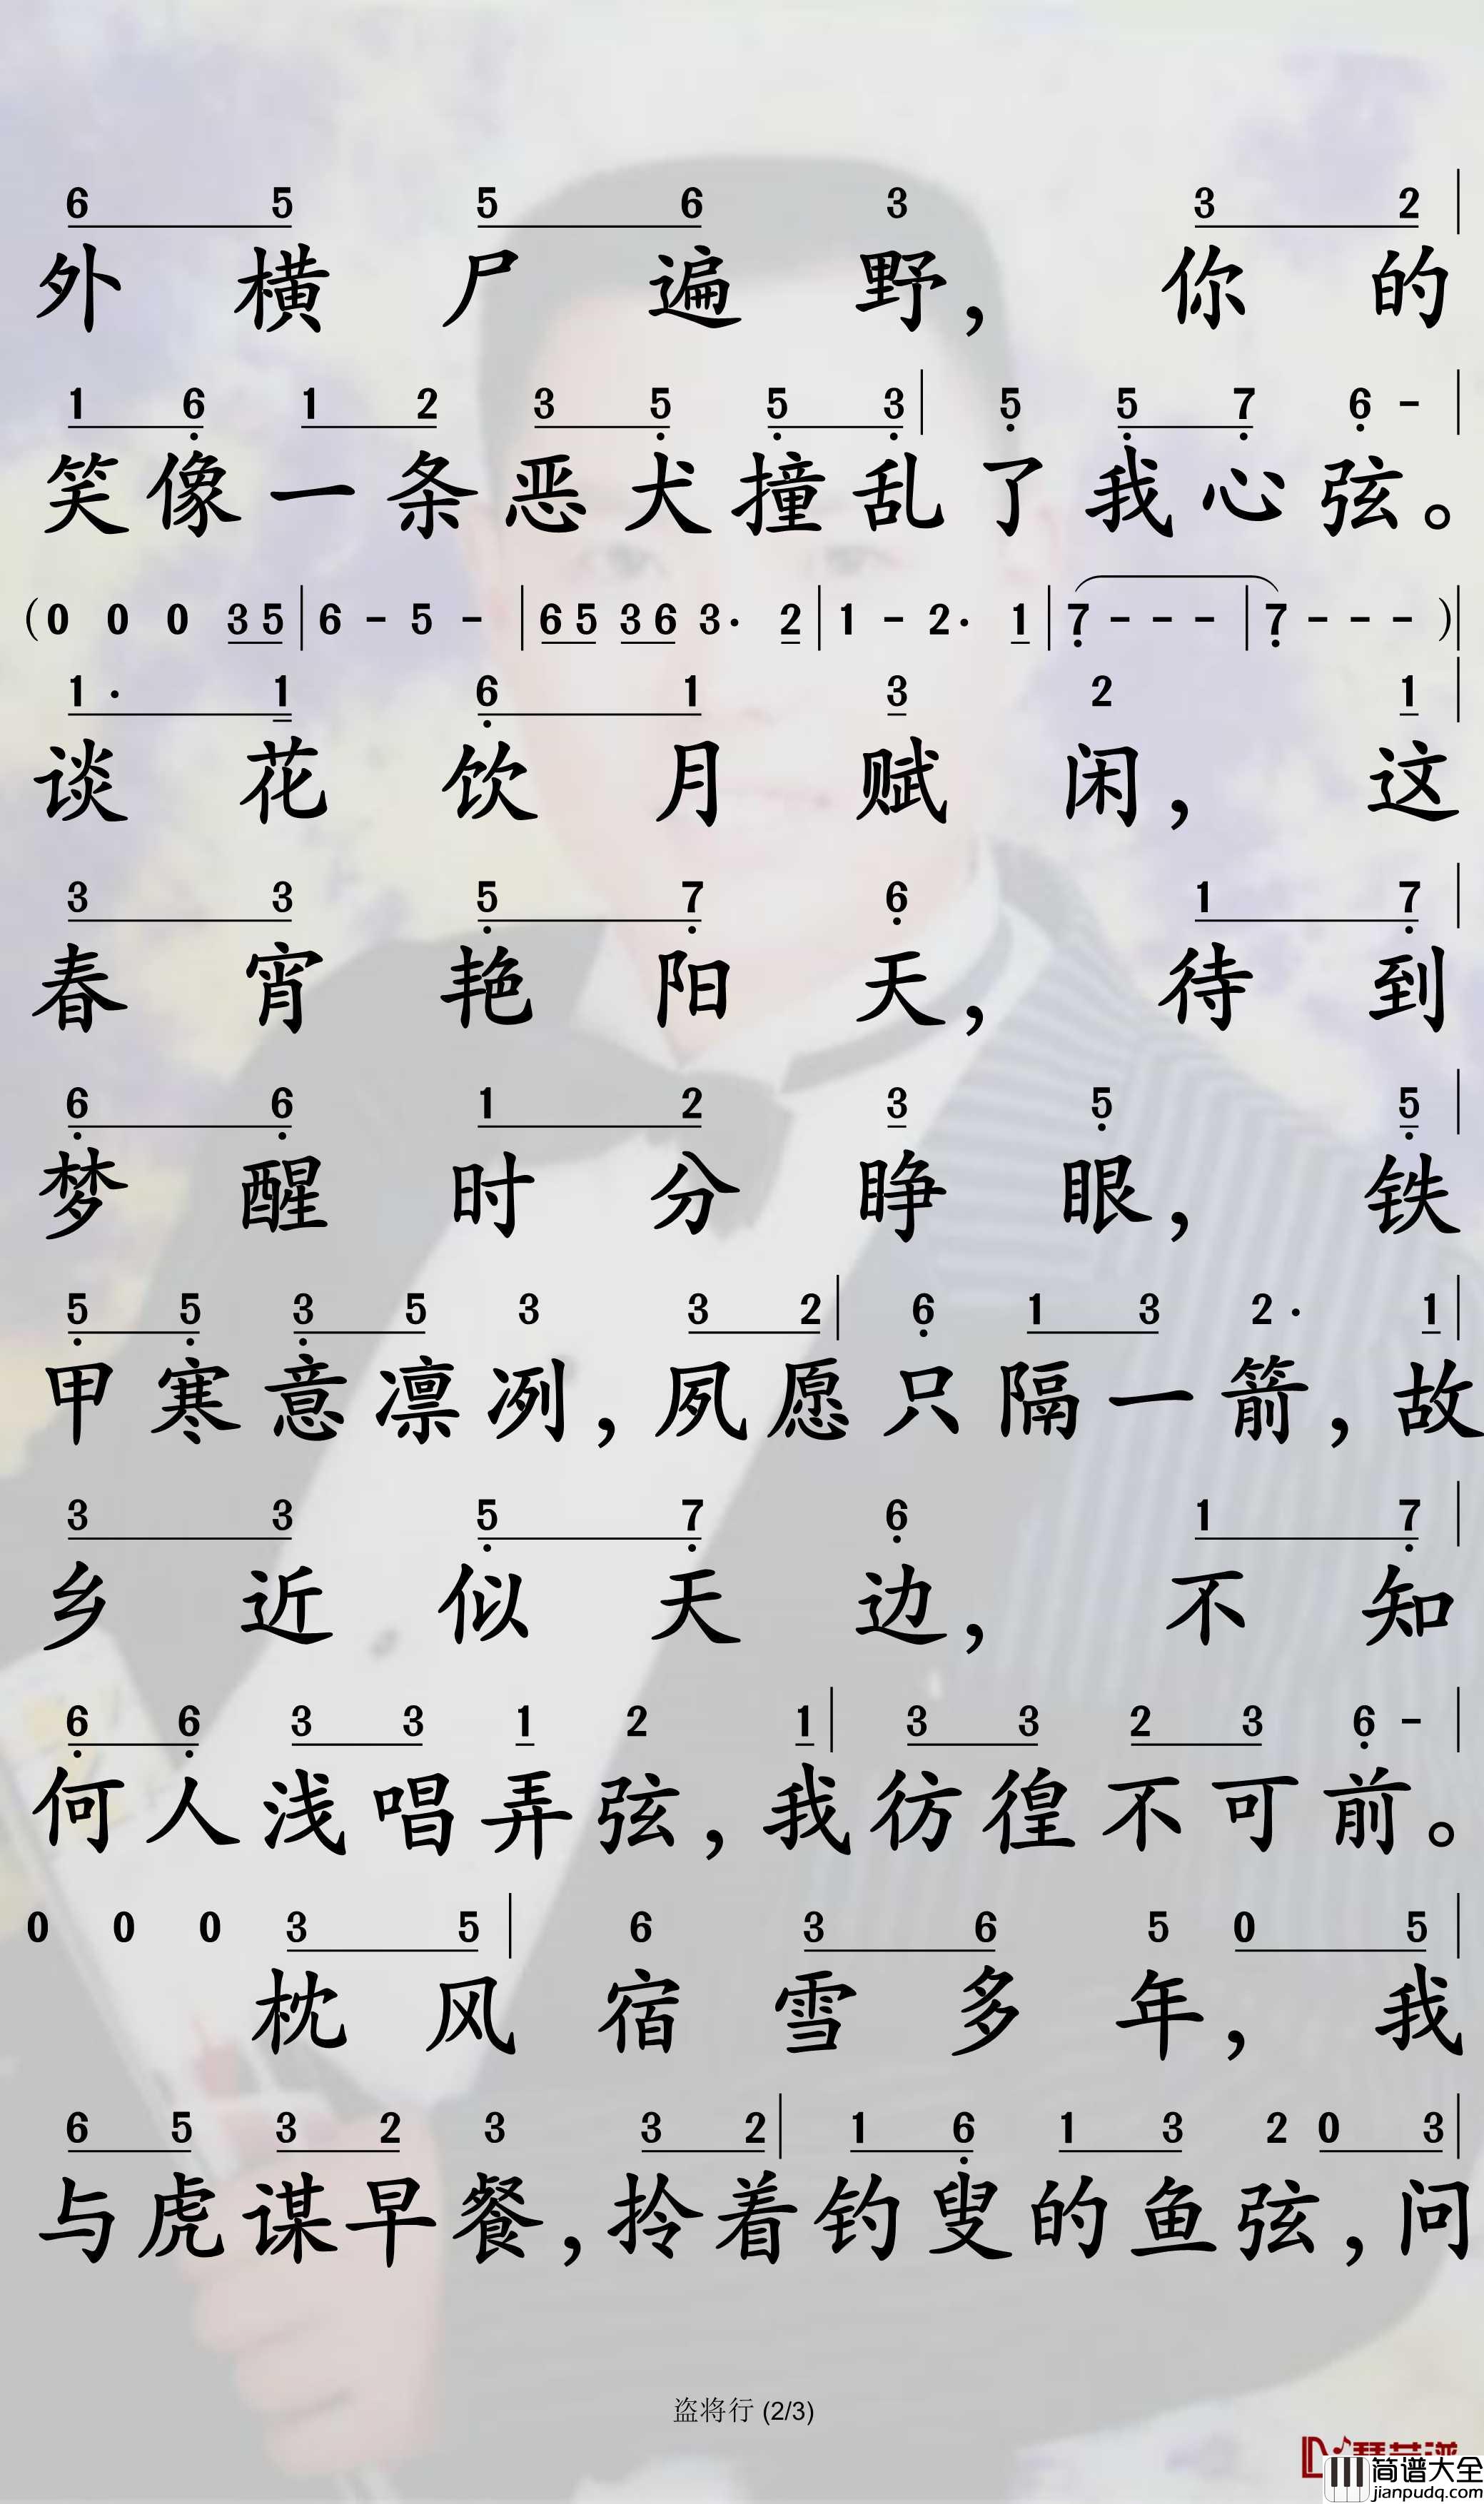 6 5 5 6 3 3 2
外横尸遍野，你的
1 6 1 2 3 5 5 3 5 5 7 6 -
笑像一条恶犬撞乱了我心弦。
(0 0 0 3 5 | 6 - 5 - | 6 5 3 6 3· 2 | 1 - 2· 1 | 7 - - - | 7 - - - )|
1· 1 6 1 3 2 1
谈花饮月赋闲，这
3 3 5 7 6 1 7
春宵艳阳天，待到
6 6 1 2 3 5 5
梦醒时分睁眼，铁
5 5 3 5 3 3 2 6 1 3 2· 1
甲寒意凛冽，夙愿只隔一箭，故
3 3 5 7 6 1 7
乡近似天边，不知
6 6 3 3 1 2 1 3 3 2 3 6 -
何人浅唱弄弦，我彷徨不可前。
0 0 0 3 5 6 3 6 5 0 5
枕风宿雪多年，我
6 5 3 2 3 3 2 1 6 1 3 2 0 3
与虎谋早餐，拎着钓叟的鱼弦，问
盗将行 (2/3)
简谱大全
jianpudq.com